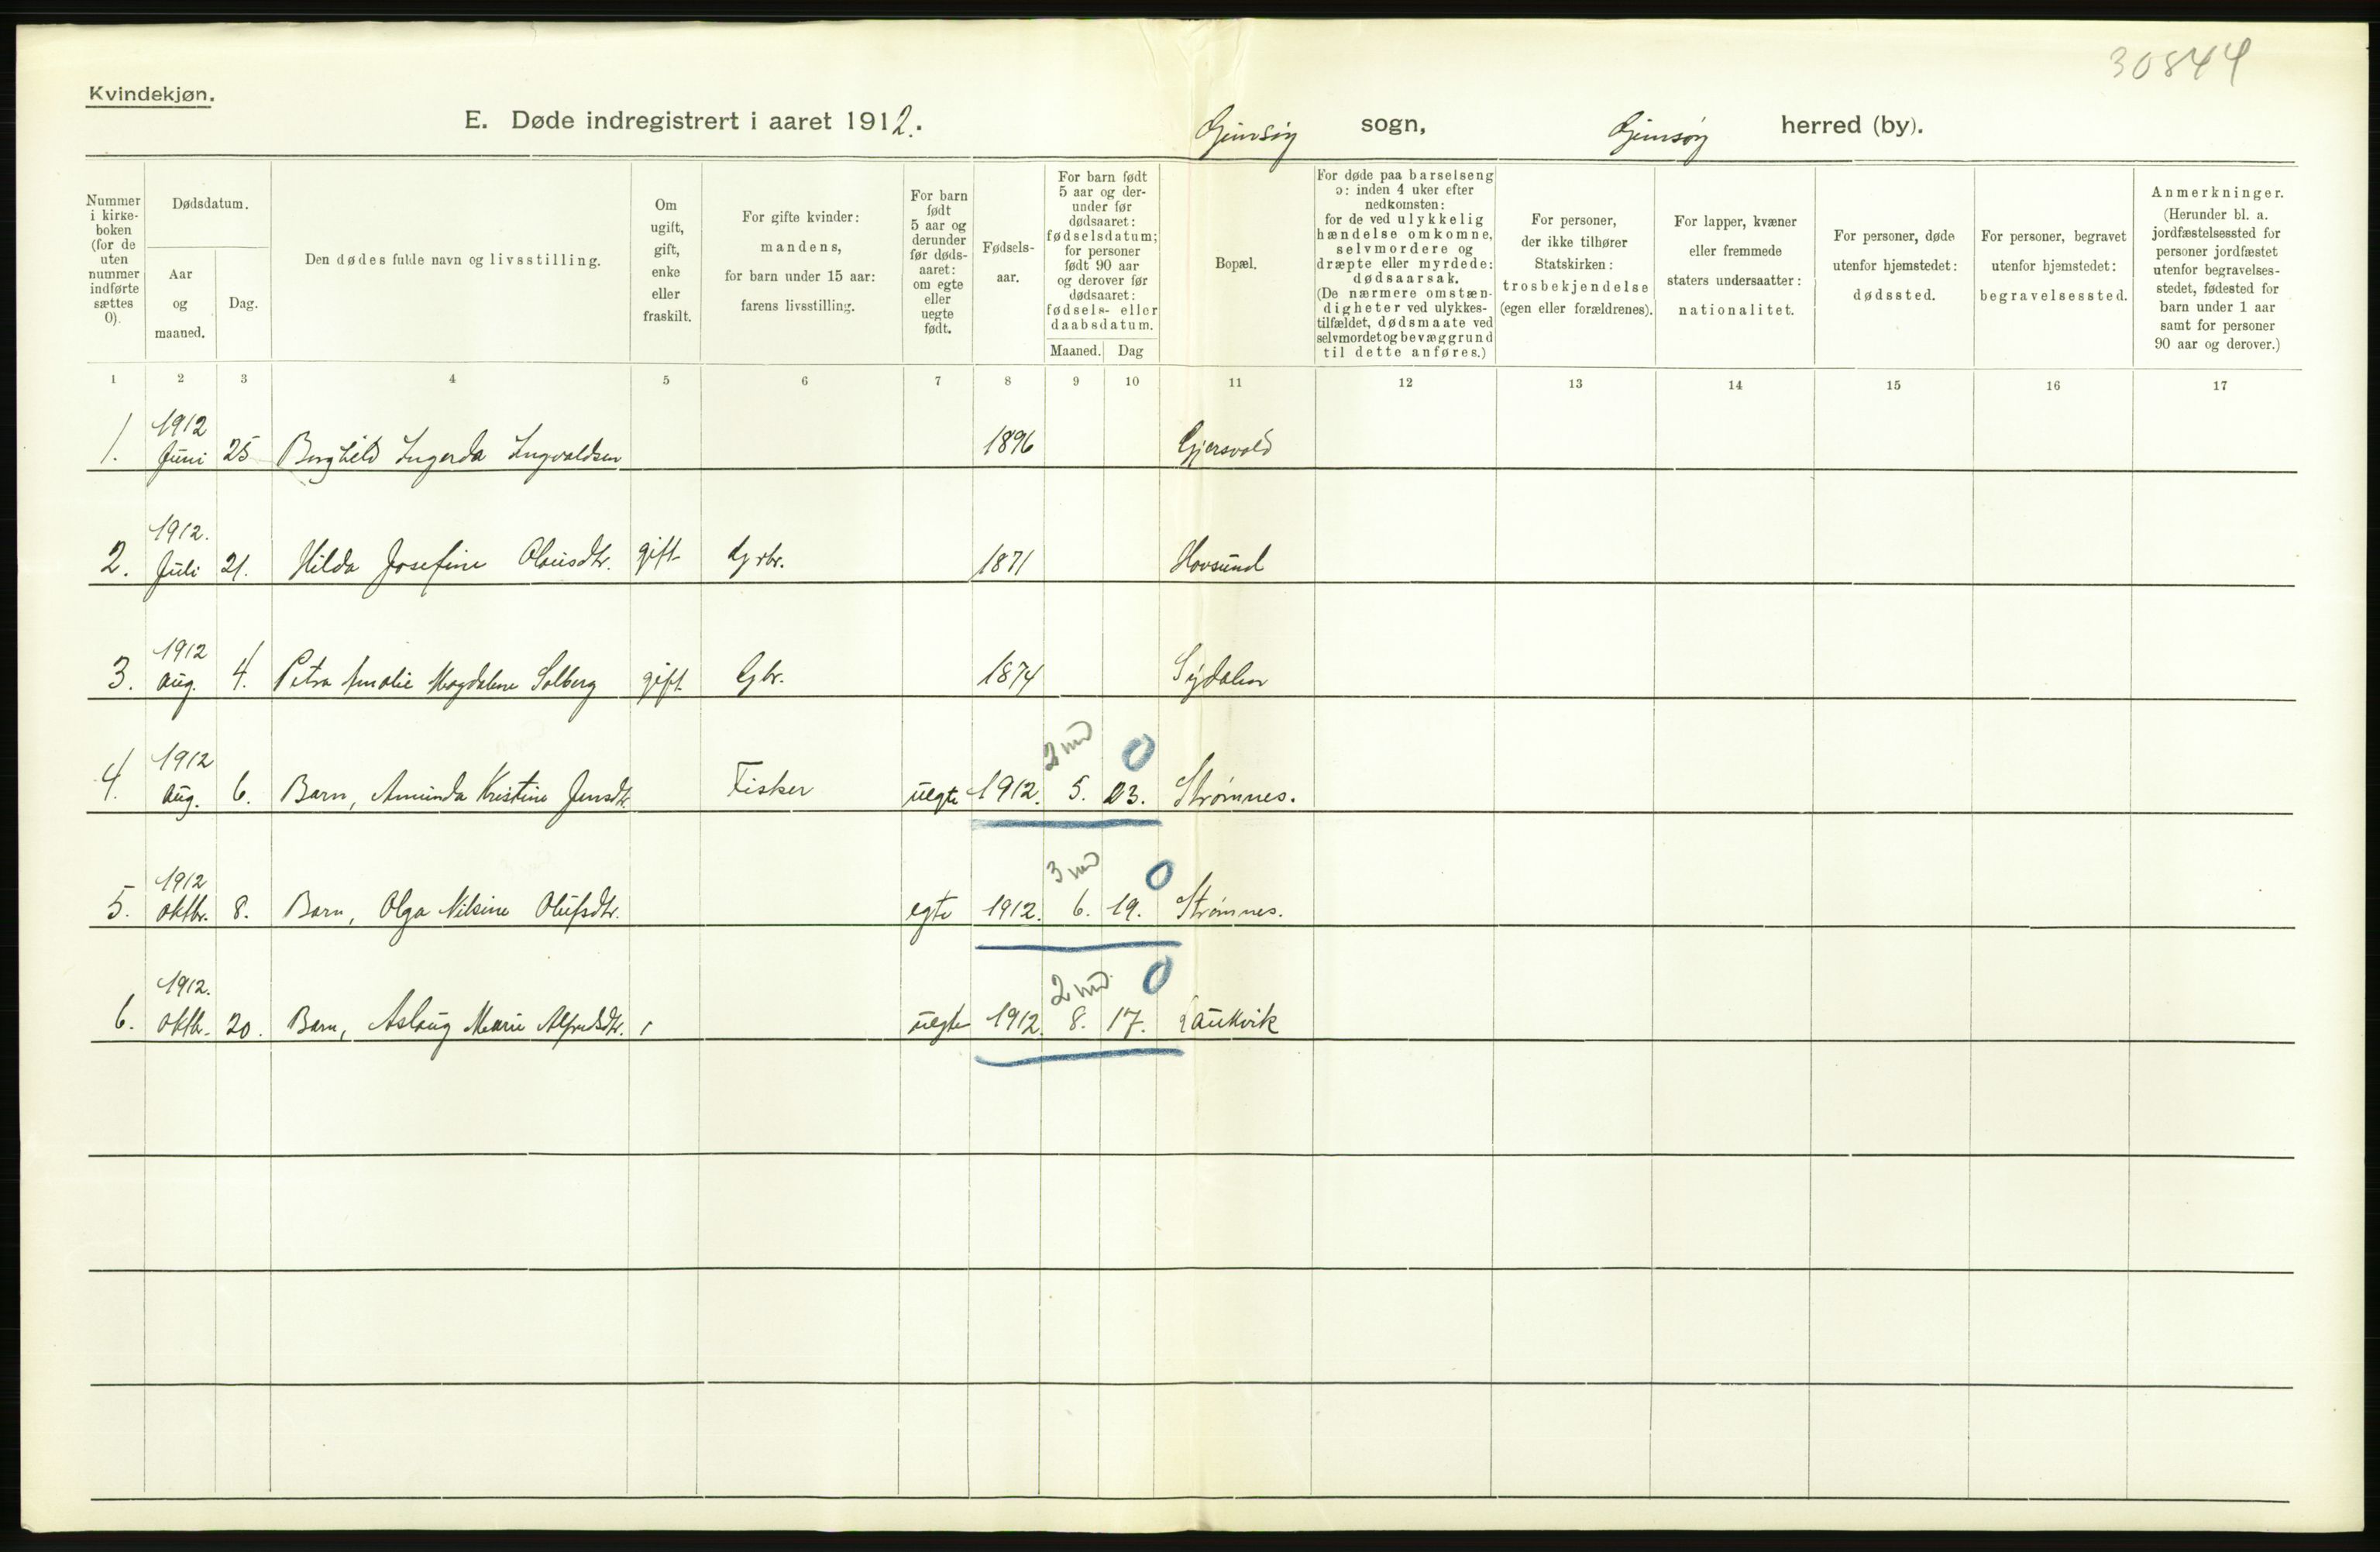 30844
Kvindekjøn.
E. Døde indregistrert i aaret 1912.
Gimsøy sogn, Gimsøy herred (by).
Nummer i kirke- boken (for de uten nummer indførte sættes 0).
Dødsdatum.
Aar og maaned.
Dag.
Den dødes fulde navn og livsstilling.
Om ugift, gift, enke eller fraskilt.
For gifte kvinder: mandens, for barn under 15 aar: farens livsstilling.
For barn født 5 aar og derunder før døds- aaret: om egte eller uegte født.
Fødsels- aar.
For barn født 5 aar og der- under før dødsaaret: fødselsdatum; for personer født 90 aar og derover før dødsaaret: fødsels- eller daabsdatum.
Maaned. Dag
Bopæl.
For døde paa barselseng ɔ: inden 4 uker efter nedkomsten: for de ved ulykkelig hændelse omkomne, selvmordere og dræpte eller myrdede: dødsaarsak. (De nærmere omstæn- digheter ved ulykkes- tilfældet, dødsmaate ved selvmordet og bevæggrund til dette anføres.)
For personer, der ikke tilhører Statskirken: trosbekjendelse (egen eller forældrenes).
For lapper, kvæner eller fremmede staters undersaatter: nationalitet.
For personer, døde utenfor hjemstedet: dødssted.
For personer, begravet utenfor hjemstedet: begravelsessted.
Anmerkninger. (Herunder bl. a. jordfæstelsessted for personer jordfæstet utenfor begravelses- stedet, fødested for barn under 1 aar samt for personer 90 aar og derover.)
1 2 3 4 5 6 7 8 9 10 11 12 13 14 15 16 17
1. 1912 Juni 25 Borghild Ingerda Ingvaldsen 1896 Gjersvold
2. 1912. Juli 21. Hilda Josefine Olausdtr. gift grbr. 1871 Hovsund
3. 1912 aug. 4. Petra Amalie Magdalene Solberg gift Gbr. 1874 Sydalen
2 md 0
4. 1912 aug. 6. Barn, Amunda Kristine Jensdtr. Fisker uegte 1912. 5. 23. Strømnes.
3 md 0
5. 1912 oktbr. 8. Barn, Olga Nilsine Olufsdtr. egte 1912. 6. 19. Strømnes.
2 md 0
6. 1912. oktbr. 20. Barn, Aslaug Marie Alfredsdtr. uegte 1912. 8. 17. Laukvik